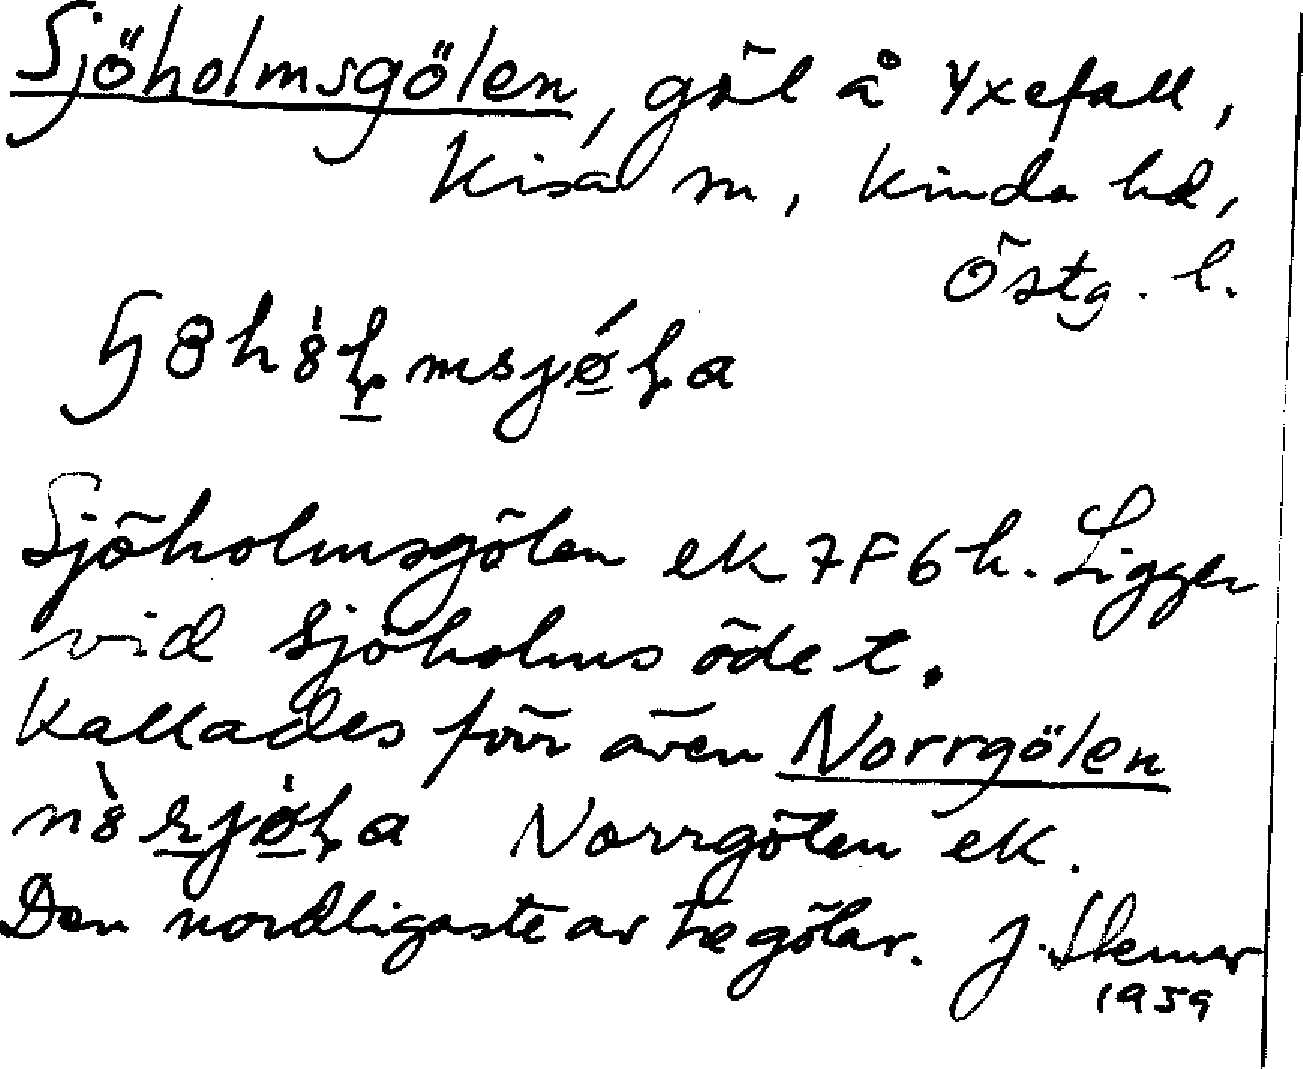 Sjöholmsgölen, göl å Yxefall,
Kisa sn, Kinda hd,
Östg. l.
Sjöholmsgölen ek 7F6h. Ligger
vid Sjöholmsödet.
Kallades förr även Norrgölen
Norrgölen ek.
Den nordligaste av tre gölar. J.
1959